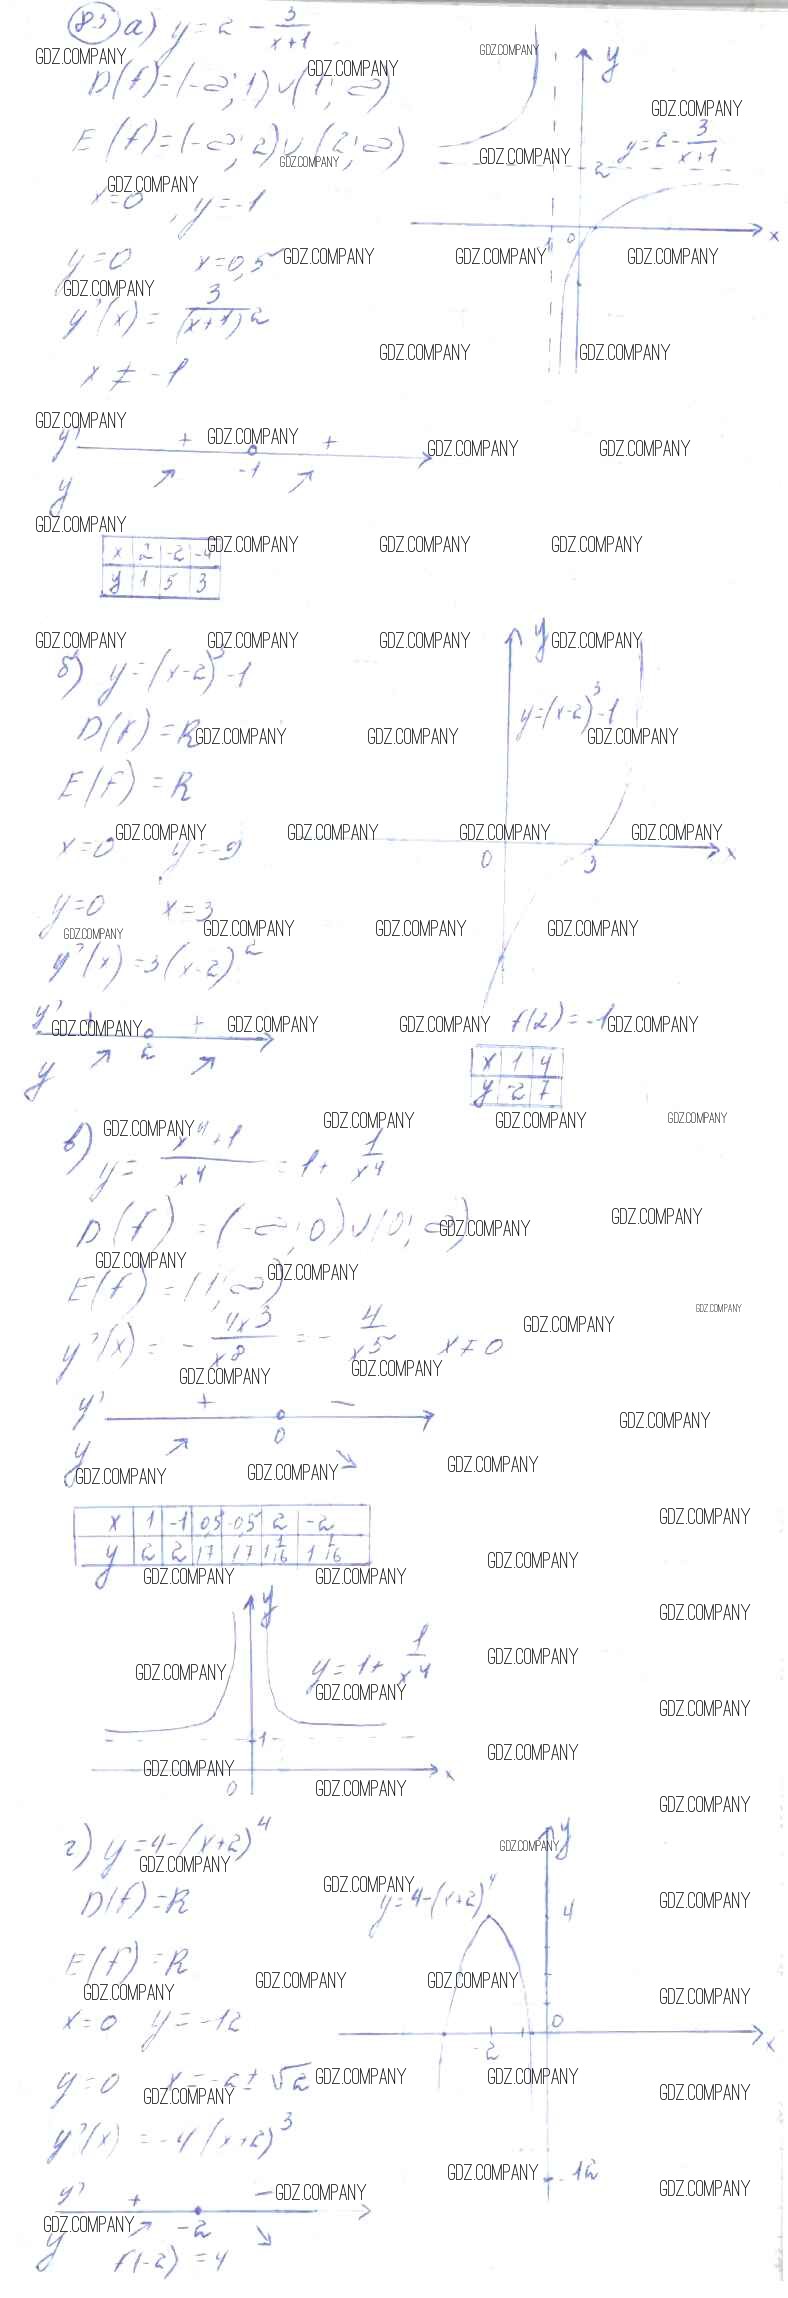 8.5 а) y = 2 - 3/(x+1)
D(f) = (-∞; 1) ∪ (1; ∞)
E(f) = (-∞; 2) ∪ (2; ∞)
x=0, y=-1
y=0 x=0,5
y'(x) = 3/(x+1)²
x ≠ -1
y' + -1 +
y ↗ ↗
x 2 -2 -4
y 1 5 3
y
y = 2 - 3/(x+1)
2
-1 0 x
б) y = (x-2)³ - 1
D(f) = R
E(f) = R
x=0 y=-9
y=0 x=3
y'(x) = 3(x-2)²
y' + 2 +
y ↗ ↗
y
y=(x-2)³-1
0 3 x
f(2) = -1
x 1 4
y -2 7
в) y = (x⁴+1)/x⁴ = 1 + 1/x⁴
D(f) = (-∞; 0) ∪ (0; ∞)
E(f) = (1; ∞)
y'(x) = - 4x³/x⁸ = - 4/x⁵ x ≠ 0
y' + 0 -
y ↗ ↘
x 1 -1 0,5 -0,5 2 -2
y 2 2 17 17 1 1/16 1 1/16
y
y = 1 + 1/x⁴
1
0 x
г) y = 4 - (x+2)⁴
D(f) = R
E(f) = R
x=0 y=-12
y=0 x = -2 ± √2
y'(x) = -4(x+2)³
y' + -2 -
y ↗ ↘
f(-2) = 4
y
y=4-(x+2)⁴
4
-2 0 x
-12
GDZ.COMPANY